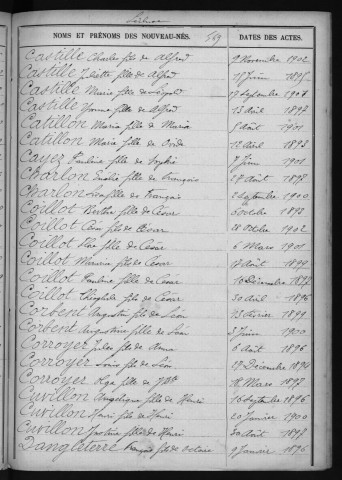 589
NOMS ET PRÉNOMS DES NOUVEAU-NÉS. DATES DES ACTES.
CASTILLE Charles fils de Alfred 9 Novembre 1902
CASTILLE Juliette fille de Alfred 17 Juin 1895
CASTILLE Maria fille de 17 Septembre 1907
CASTILLE Yvonne fille de Alfred 13 Août 1897
CATILLON Maria fille de Maria 8 Août 1901
CATILLON Maria fille de 12 Avril 1893
CAYEZ Pauline fille de Sophie 7 Juin 1901
CHARLON fille de François 28 Août 1898
CHARLON fille de François 2 Septembre 1900
COILLOT Berthe fille de César 6 1893
COILLOT fils de César 18 Octobre 1902
COILLOT fille de César 6 Mars 1901
COILLOT fille de César 17 Août 1899
COILLOT Pauline fille de César 10 Décembre 1897
COILLOT Théophile fils de César 30 Avril 1896
CORBENT Augustin fils de Léon 13 Février 1899
CORBENT Augustine fille de Léon 3 Juin 1900
CORROYER Jules fils de 6 Août 1896
CORROYER Louis fils de Léon 17 Décembre 1896
CORROYER fille de J Bte 18 Mars 1897
CUVILLON Angélique fille de Henri 16 Septembre 1896
CUVILLON Henri fils de Henri 20 Janvier 1900
CUVILLON Justine fille de Henri 30 Août 1897
DANGLETERRE François fils de Octave 9 Janvier 1896